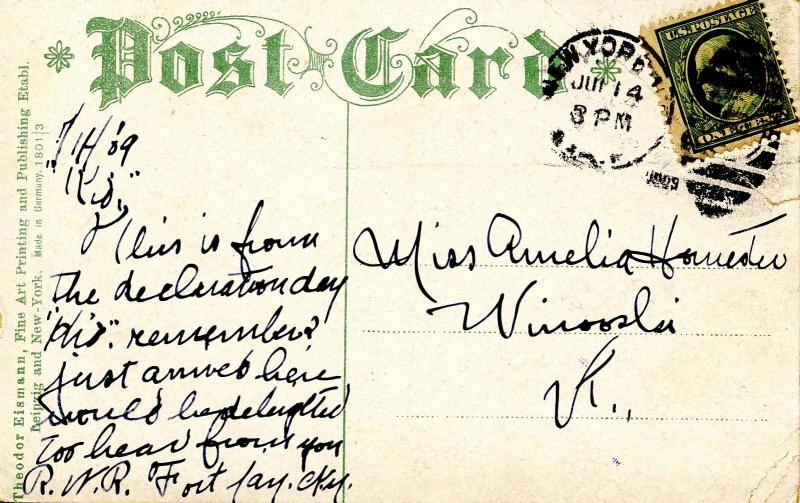 Post Card
Theodor Eismann, Fine Art Printing and Publishing Etabl.
Leipzig and New-York. Made in Germany. 1801|3
NEW YORK
JUL 14
8 PM
1909
U.S. POSTAGE
ONE CENT
7/14/09
"Kid"
This is from
the decleration day
"Kid". remember?
just arrived here
would be delighted
too hear from you
R.W.R. Fort Jay. N.Y.
Miss Amelia
Winooski
Vt.,